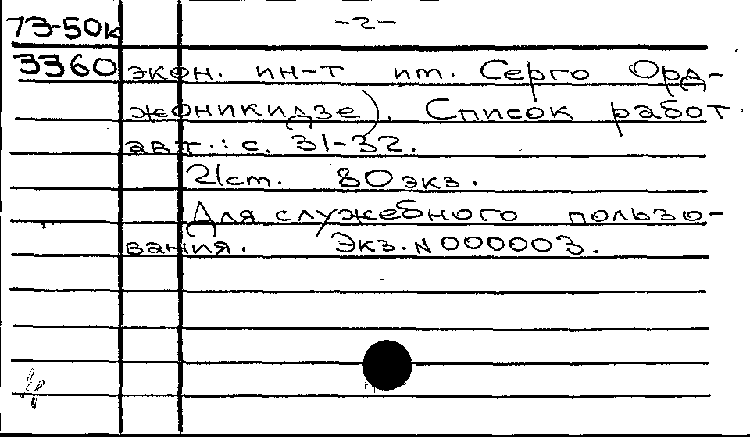 73-50к -2-
3360 экон. ин-т им. Серго Орд-
жоникидзе). Список работ
авт.: с. 31-32.
21см. 80 экз.
Для служебного пользо-
вания. Экз. N 000003.